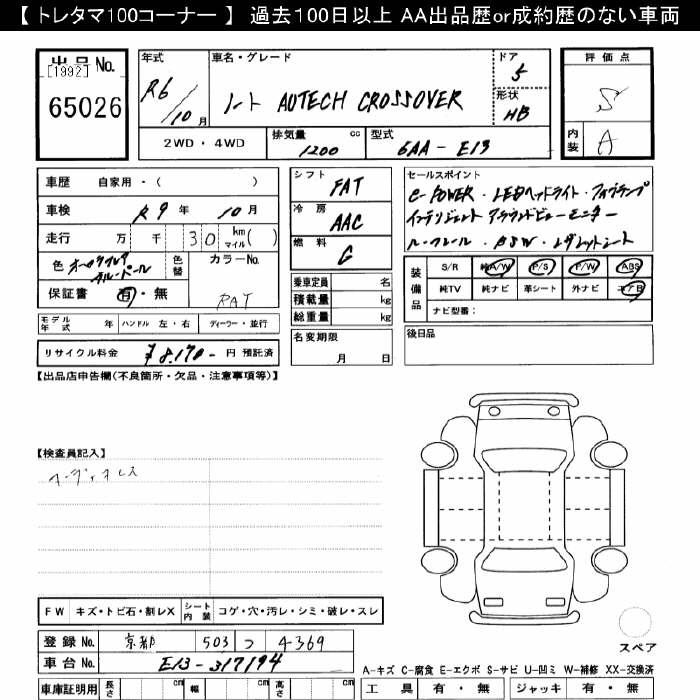 【 トレタマ100コーナー 】 過去100日以上 AA出品歴or成約歴のない車両
出品 No.
[1992]
65026
年式
R6/10 月
車名・グレード
ノート AUTECH CROSSOVER
ドア
5
形状
HB
評価点
S
内装
A
2WD ・ 4WD
排気量 1200 cc
型式 6AA - E13
車歴 自家用 ・ ( )
車検 R9 年 10 月
走行 万 千 30 km マイル ( )
色
色替
カラーNo.
RAT
保証書 有 ・ 無
モデル年式 年 ハンドル 左 ・ 右 ディーラー ・ 並行
リサイクル料金 ¥8,170- 円 預託済
シフト FAT
冷房 AAC
燃料 G
乗車定員 名
積載量 kg
総重量 kg
名変期限
月 日
セールスポイント
e-POWER ・ LEDヘッドライト ・ フォグランプ
インテリジェント アラウンドビューモニター
ルーフレール ・ BSW ・ レザレットシート
装備品
S/R 純A/W P/S P/W ABS
純TV 純ナビ 革シート 外ナビ エアB
ナビ型番:
後日品
【出品店申告欄(不良箇所・欠品・注意事項等)】
【検査員記入】
オーディオレス
FW キズ・トビ石・割レX シート内装 コゲ・穴・汚レ・シミ・破レ・スレ
登録 No. 京都 503 つ 4369
車台 No. E13-317194
車庫証明用 長さ cm 幅 cm 高さ cm
スペア
A-キズ C-腐食 E-エクボ S-サビ U-凹ミ W-補修 XX-交換済
工具 有 ・ 無 ジャッキ 有 ・ 無